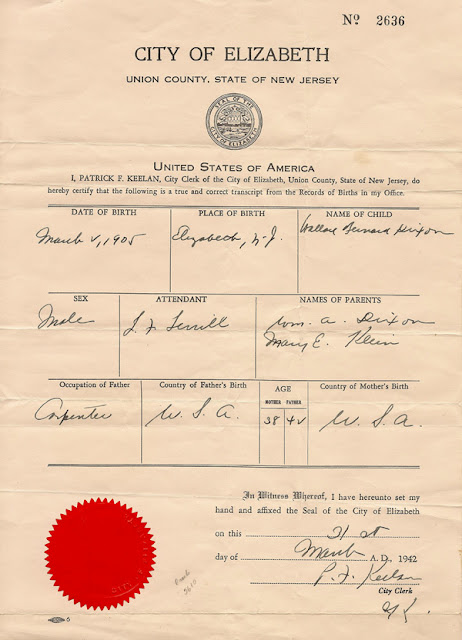 Nº 2636
CITY OF ELIZABETH
UNION COUNTY, STATE OF NEW JERSEY
SEAL OF THE CITY OF ELIZABETH
UNITED STATES OF AMERICA
I, PATRICK F. KEELAN, City Clerk of the City of Elizabeth, Union County, State of New Jersey, do
hereby certify that the following is a true and correct transcript from the Records of Births in my Office.
DATE OF BIRTH PLACE OF BIRTH NAME OF CHILD
March 2, 1905 Elizabeth, N.J. Wallace Bernard Dixon
SEX ATTENDANT NAMES OF PARENTS
Male Wm. A. Dixon
Mary E. Klein
Occupation of Father Country of Father's Birth AGE Country of Mother's Birth
MOTHER FATHER
Carpenter U. S. A. 38 42 U. S. A.
In Witness Whereof, I have hereunto set my
hand and affixed the Seal of the City of Elizabeth
on this 31st
day of March A.D., 1942
P. F. Keelan
City Clerk
5